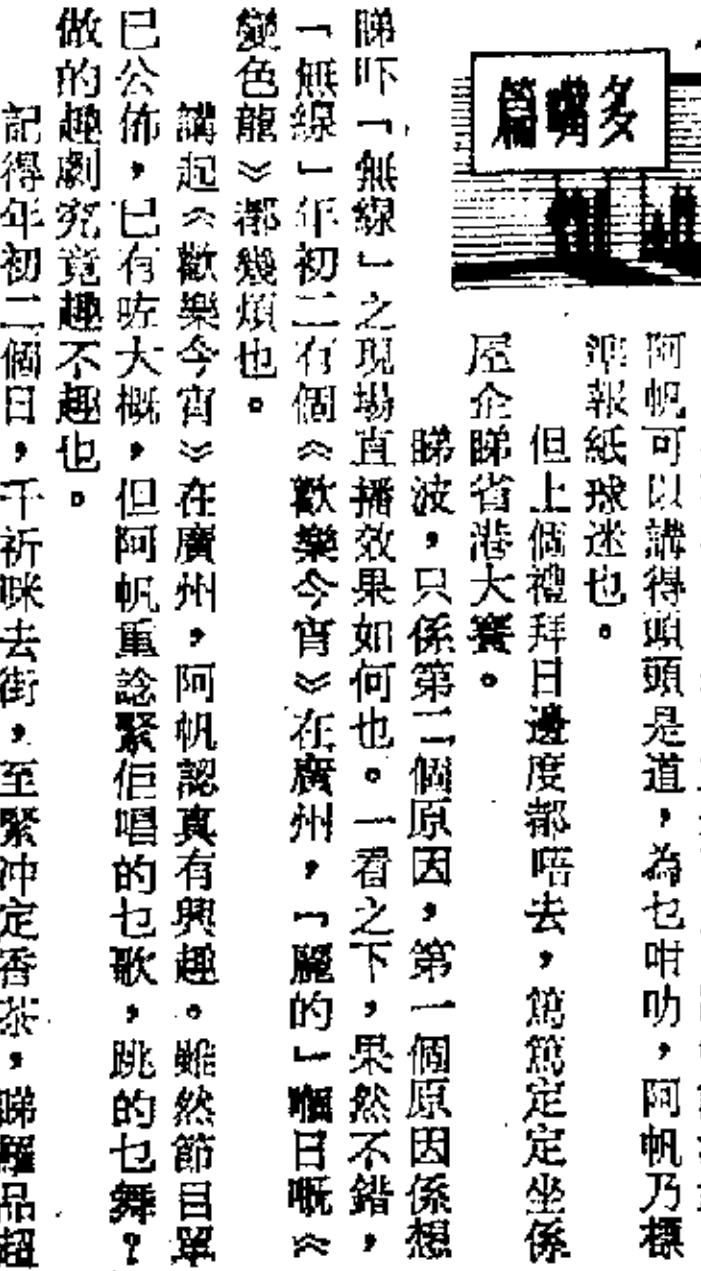 多嘴篇
阿帆可以講得頭頭是道，為乜咁叻，阿帆乃標
準報紙球迷也。
但上個禮拜日邊度都唔去，篤篤定定坐係
屋企睇省港大賽。
睇波，只係第二個原因，第一個原因係想
睇吓「無線」之現場直播效果如何也。一看之下，果然不錯，
「無線」年初二有個《歡樂今宵》在廣州，「麗的」嗰日嘅《
變色龍》都幾煩也。
講起《歡樂今宵》在廣州，阿帆認真有興趣。雖然節目單
已公佈，已有咗大概，但阿帆重諗緊佢唱的乜歌，跳的乜舞？
做的趣劇究竟趣不趣也。
記得年初二個日，千祈咪去街，至緊冲定香茶，睇羅品超